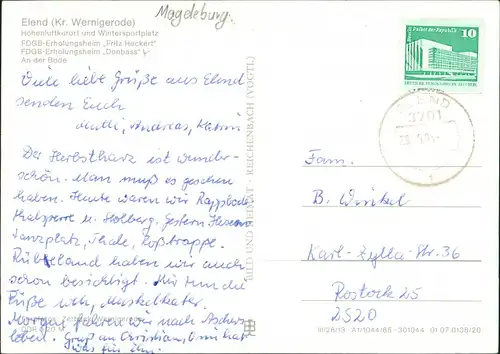 Magdeburg.
Elend (Kr. Wernigerode)
Höhenluftkurort und Wintersportplatz
FDGB-Erholungsheim „Fritz Heckert"
FDGB-Erholungsheim „Donbass"
An der Bode
Viele liebe Grüße aus Elend
senden Euch
Mutti, Andreas, Katrin
Der Herbstharz ist wunder-
schön. Man muß es gesehen
haben. Heute waren wir Rappbode
thalsperre u. Stolberg. Gestern Hexen
tanzplatz, Thale, Roßtrappe.
Rübeland haben wir auch
schon besichtigt. Mir tun die
Füße weh, Muskelkater.
Morgen fahren wir nach Aschers-
leben. Gruß an Christian, Omi hat
was für ihn.
BILD UND HEIMAT · REICHENBACH (VOGTL)
10
3701
Fam.
B. Winkel
Karl-Zylla-Str. 36
Rostock 25
2520
III/26/13 A1/1044/85 301044 01 07 0108/20